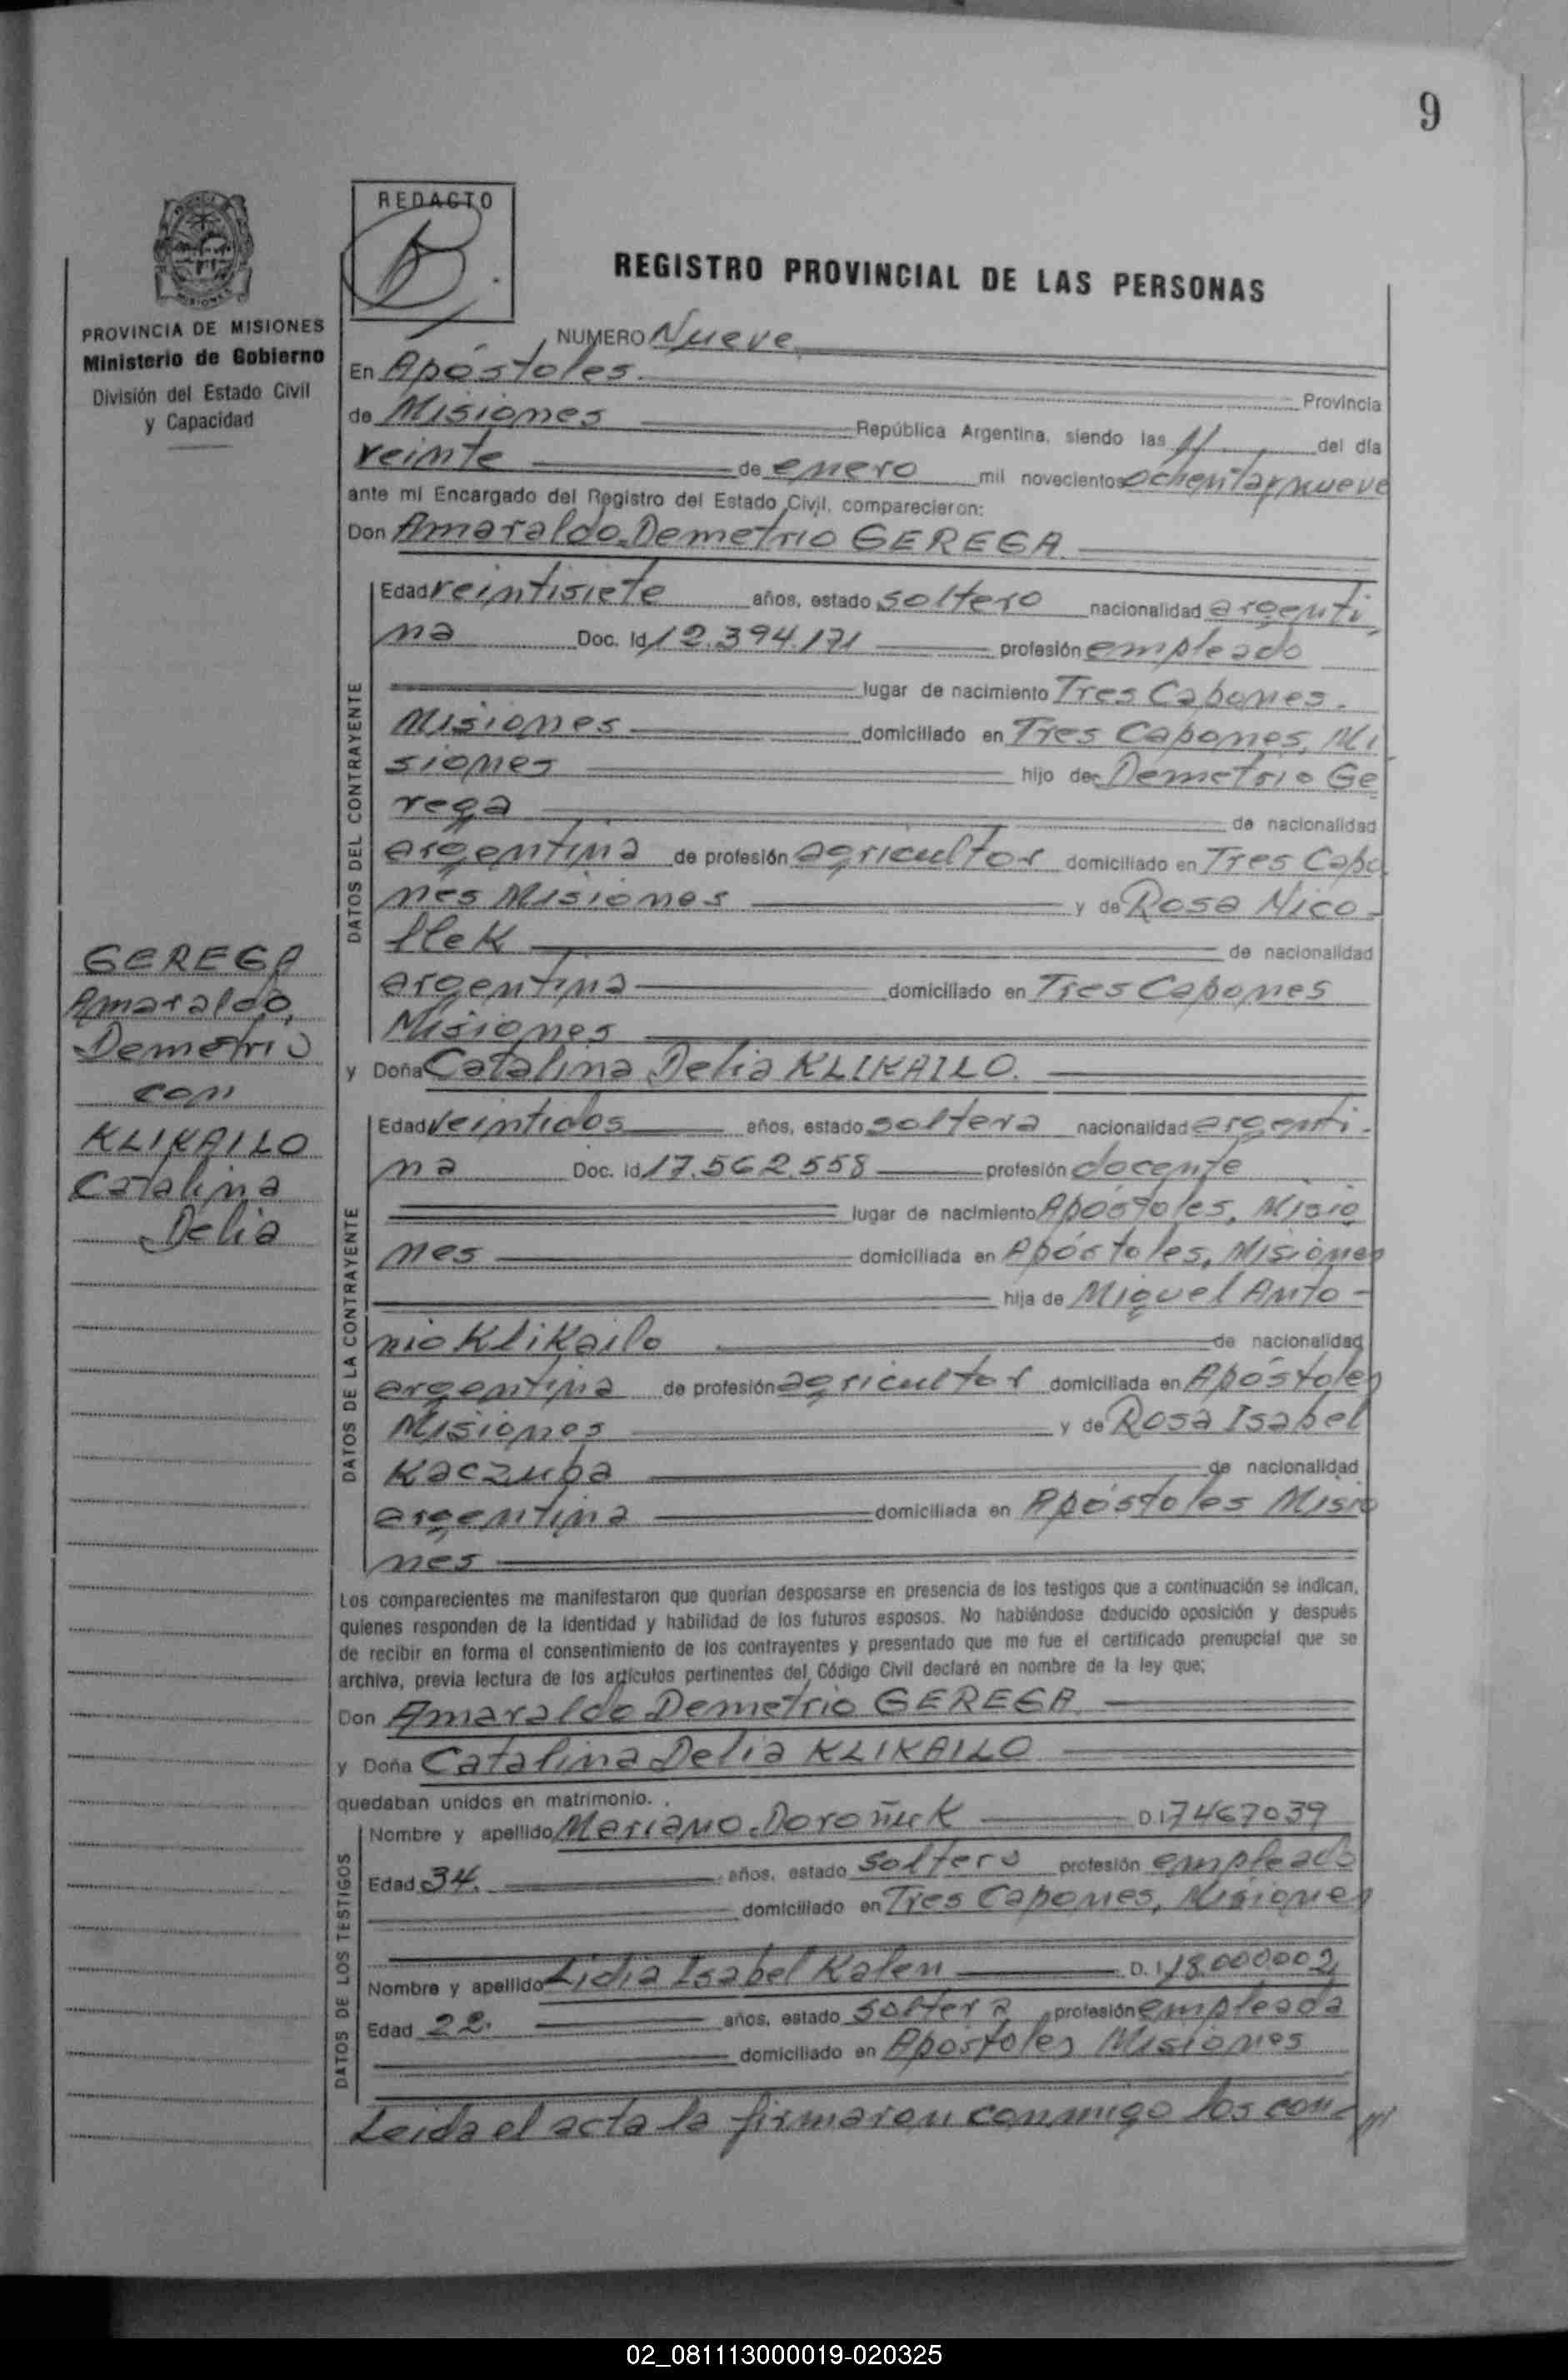 9
REDACTO
REGISTRO PROVINCIAL DE LAS PERSONAS
PROVINCIA DE MISIONES
Ministerio de Gobierno
División del Estado Civil
y Capacidad
GEREGA
Amaraldo
Demetrio
con
KLIKAILO
Catalina
Delia
NUMERO Nueve
En Apóstoles. Provincia
de Misiones República Argentina, siendo las 11 del día
veinte de enero mil novecientos ochentaynueve
ante mi Encargado del Registro del Estado Civil, comparecieron:
Don Amaraldo Demetrio GEREGA
DATOS DEL CONTRAYENTE
Edad veintisiete años, estado soltero nacionalidad argenti
na Doc. Id 12.394.171 profesión empleado
lugar de nacimiento Tres Capones.
Misiones domiciliado en Tres Capones, Mi
siones hijo de Demetrio Ge
rega de nacionalidad
argentina de profesión agricultor domiciliado en Tres Capo
nes Misiones y de Rosa Nico-
llek de nacionalidad
argentina domiciliado en Tres Capones
Misiones
y Doña Catalina Delia KLIKAILO.
DATOS DE LA CONTRAYENTE
Edad veintidos años, estado soltera nacionalidad argenti-
na Doc. id 17.562.558 profesión docente
lugar de nacimiento Apóstoles, Misio
nes domiciliada en Apóstoles, Misiones
hija de Miguel Anto-
nio Klikailo de nacionalidad
argentina de profesión agricultor domiciliada en Apóstoles
Misiones y de Rosa Isabel
Kaczuba de nacionalidad
argentina domiciliada en Apóstoles Misio
nes
Los comparecientes me manifestaron que querían desposarse en presencia de los testigos que a continuación se indican,
quienes responden de la identidad y habilidad de los futuros esposos. No habiéndose deducido oposición y después
de recibir en forma el consentimiento de los contrayentes y presentado que me fue el certificado prenupcial que se
archiva, previa lectura de los artículos pertinentes del Código Civil declaré en nombre de la ley que;
Don Amaraldo Demetrio GEREGA
y Doña Catalina Delia KLIKAILO
quedaban unidos en matrimonio.
DATOS DE LOS TESTIGOS
Nombre y apellido Mariano Doroñuk D.I 7467039
Edad 34. años, estado soltero profesión empleado
domiciliado en Tres Capones, Misiones
Nombre y apellido Lidia Isabel Kalen D.I. 18.000002
Edad 22. años, estado soltera profesión empleada
domiciliado en Apostoles Misiones
Leida el acta la firmaron conmigo los con-
02_081113000019-020325